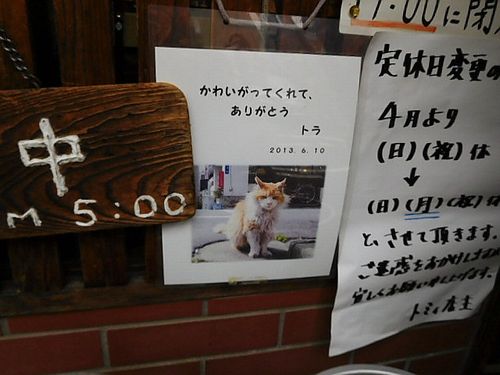 中
M 5:00
かわいがってくれて、
ありがとう
トラ
2013. 6. 10
7:00に閉
定休日変更の
4月より
(日)(祝)休
↓
(日)(月)(祝)休
とさせて頂きます。
ご迷惑をおかけしますが
宜しくお願いいたします。
トミィ店主